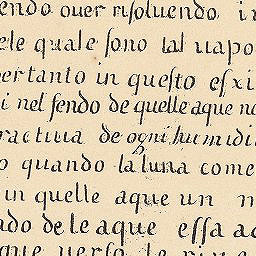 endo ouer risoluendo, i
ele quale sono tal uapo
ertanto in questo esxi
i nel fendo de quelle aque n
ractiua de ogni humidi
o quando la luna come
in quelle aque un n
ado de le aque essa a
que uerso le riue